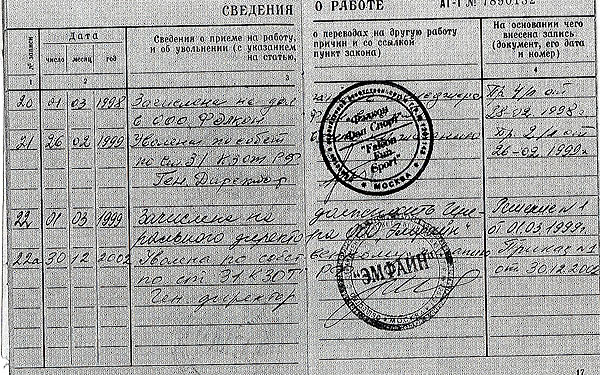 СВЕДЕНИЯ О РАБОТЕ АТ-I № 7890132
№ записи
Дата
число месяц год
Сведения о приеме на работу,
и об увольнении (с указанием
на статью,
о переводах на другую работу
причин и со ссылкой
пункт закона)
На основании чего
внесена запись
(документ, его дата
и номер)
1 2 3 4
20 01 03 1998 Зачислена на дол
в ООО Фалкон
Пр. 4/а от
28.02.1998г.
21 26 02 1999 Уволена по собст
по ст. 31 КЗОТ РФ
Ген. Директор
Пр. 2/а от
26-02.1999г.
"Фалкон
Фан Спорт"
"Falcon
Fun
Sport"
МОСКВА
22 01 03 1999 Зачислена на должность Гене
рального директора ООО "Эмфаин"
Решение №1
от 01.03.1999г.
22а 30 12 2002 Уволена по собст
по ст. 31 КЗОТ
Ген. директор
Приказ №1
от 30.12.2002
"ЭМФАИН"
МОСКВА
17